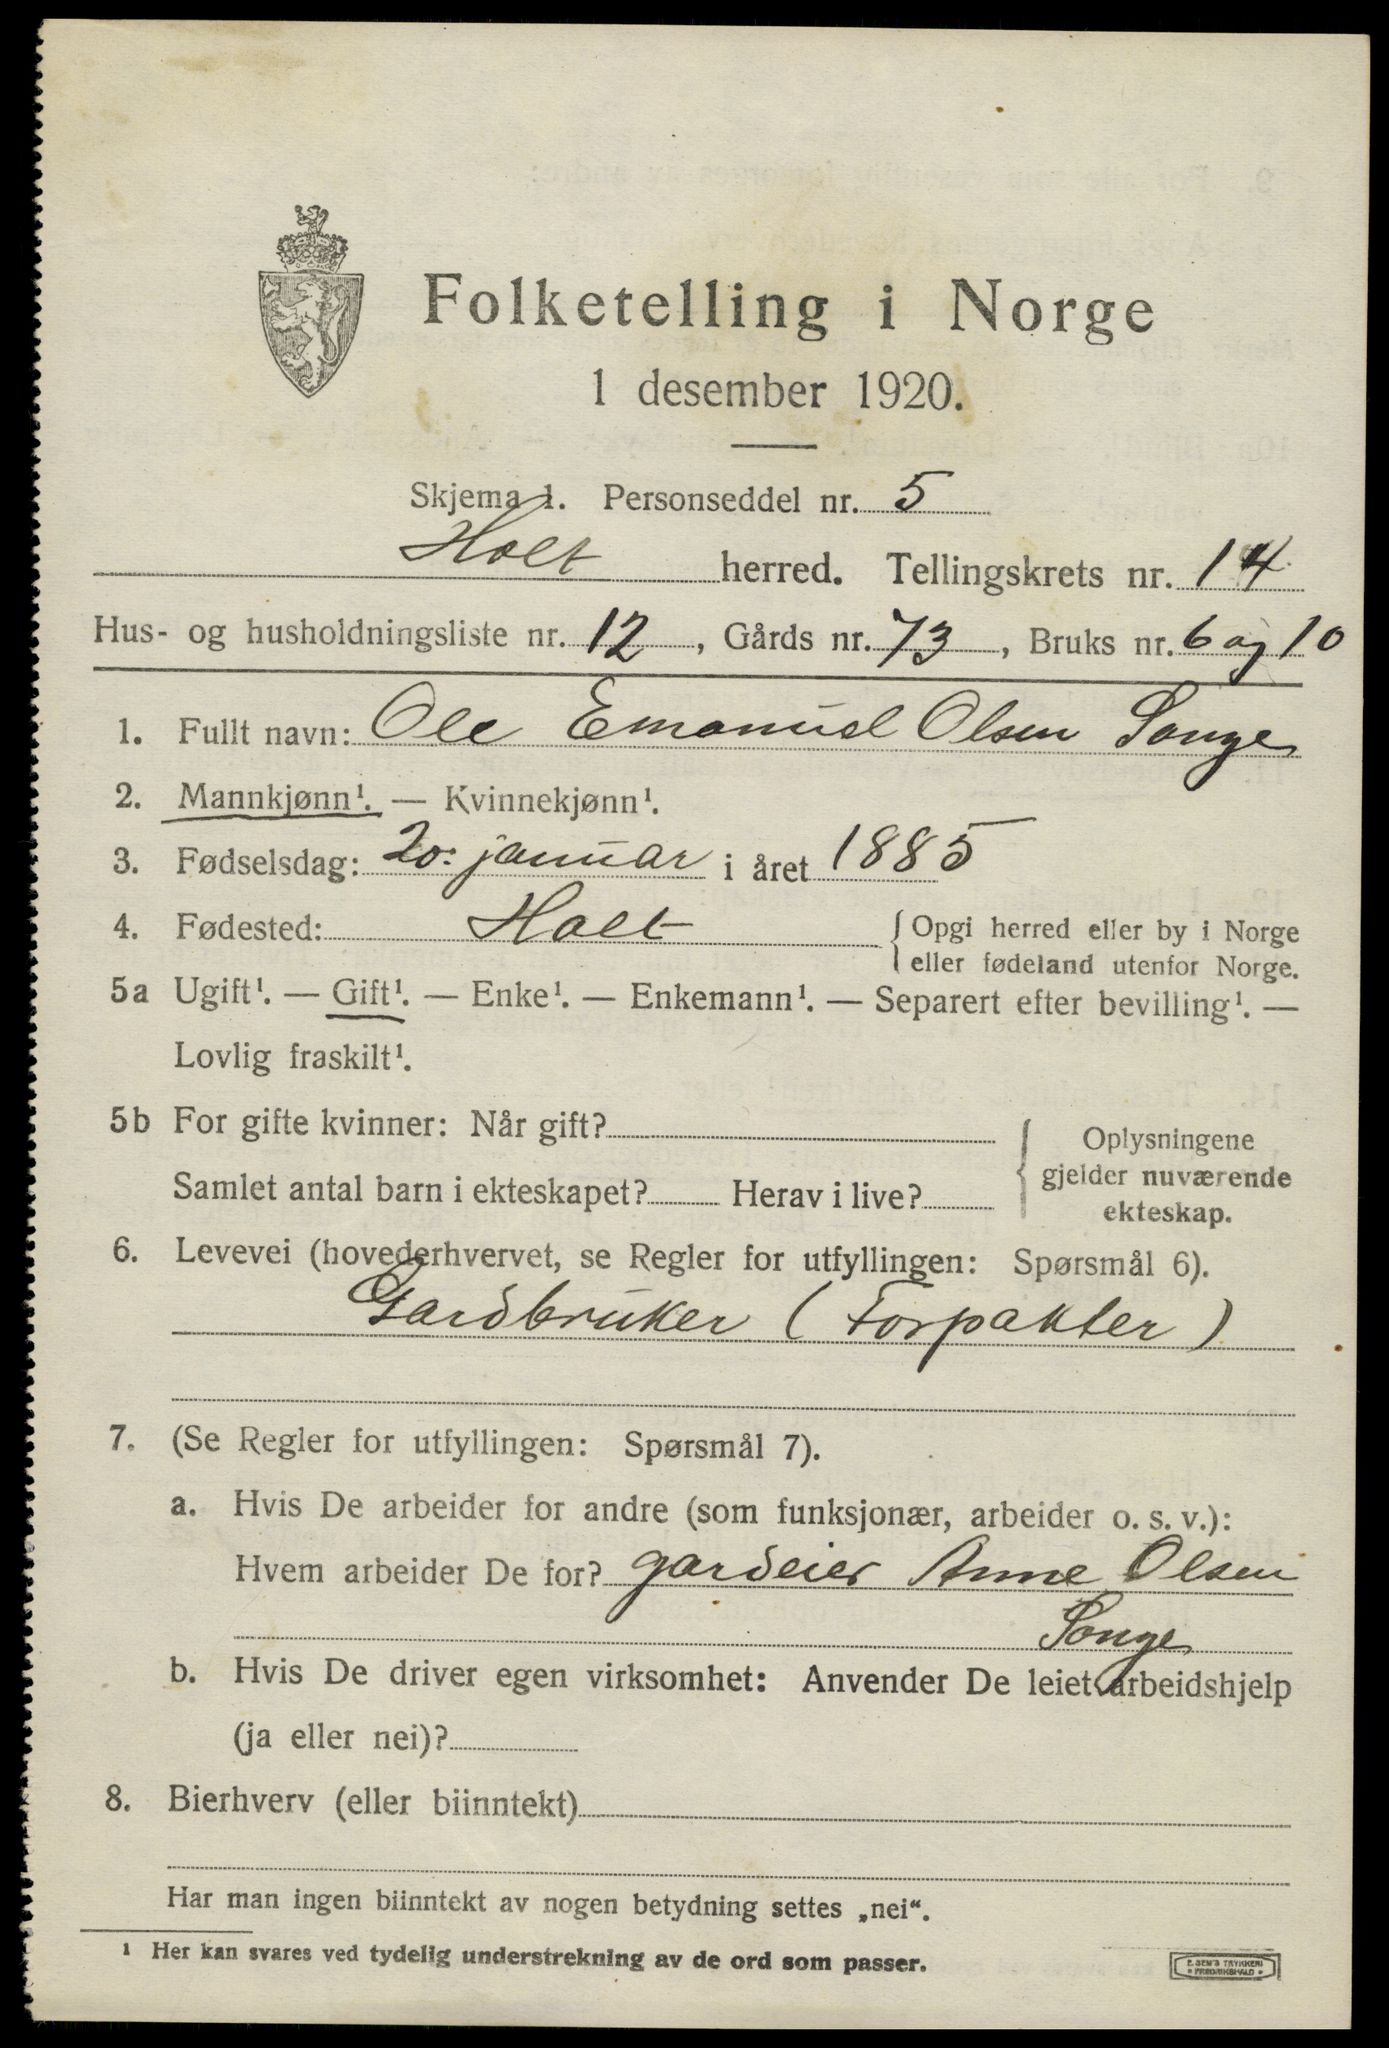 Folketelling i Norge
1 desember 1920.
Skjema 1. Personseddel nr. 5
Holt herred. Tellingskrets nr. 14
Hus- og husholdningsliste nr. 12, Gårds nr. 73, Bruks nr. 6 og 10
1. Fullt navn: Ole Emanuel Olsen Songe
2. Mannkjønn¹. — Kvinnekjønn¹.
3. Fødselsdag: 20. januar i året 1885
4. Fødested: Holt { Opgi herred eller by i Norge
eller fødeland utenfor Norge.
5a Ugift¹. — Gift¹. — Enke¹. — Enkemann¹. — Separert efter bevilling¹. —
Lovlig fraskilt¹.
5b For gifte kvinner: Når gift?
Samlet antal barn i ekteskapet? Herav i live?
{ Oplysningene
gjelder nuværende
ekteskap.
6. Levevei (hovederhvervet, se Regler for utfyllingen: Spørsmål 6).
Gardbruker (Forpakter)
7. (Se Regler for utfyllingen: Spørsmål 7).
a. Hvis De arbeider for andre (som funksjonær, arbeider o. s. v.):
Hvem arbeider De for? gardeier Anne Olsen
Songe
b. Hvis De driver egen virksomhet: Anvender De leiet arbeidshjelp
(ja eller nei)?
8. Bierhverv (eller biinntekt)
Har man ingen biinntekt av nogen betydning settes „nei“.
¹ Her kan svares ved tydelig understrekning av de ord som passer.
E. SEM'S TRYKKERI
• FREDRIKSHALD •